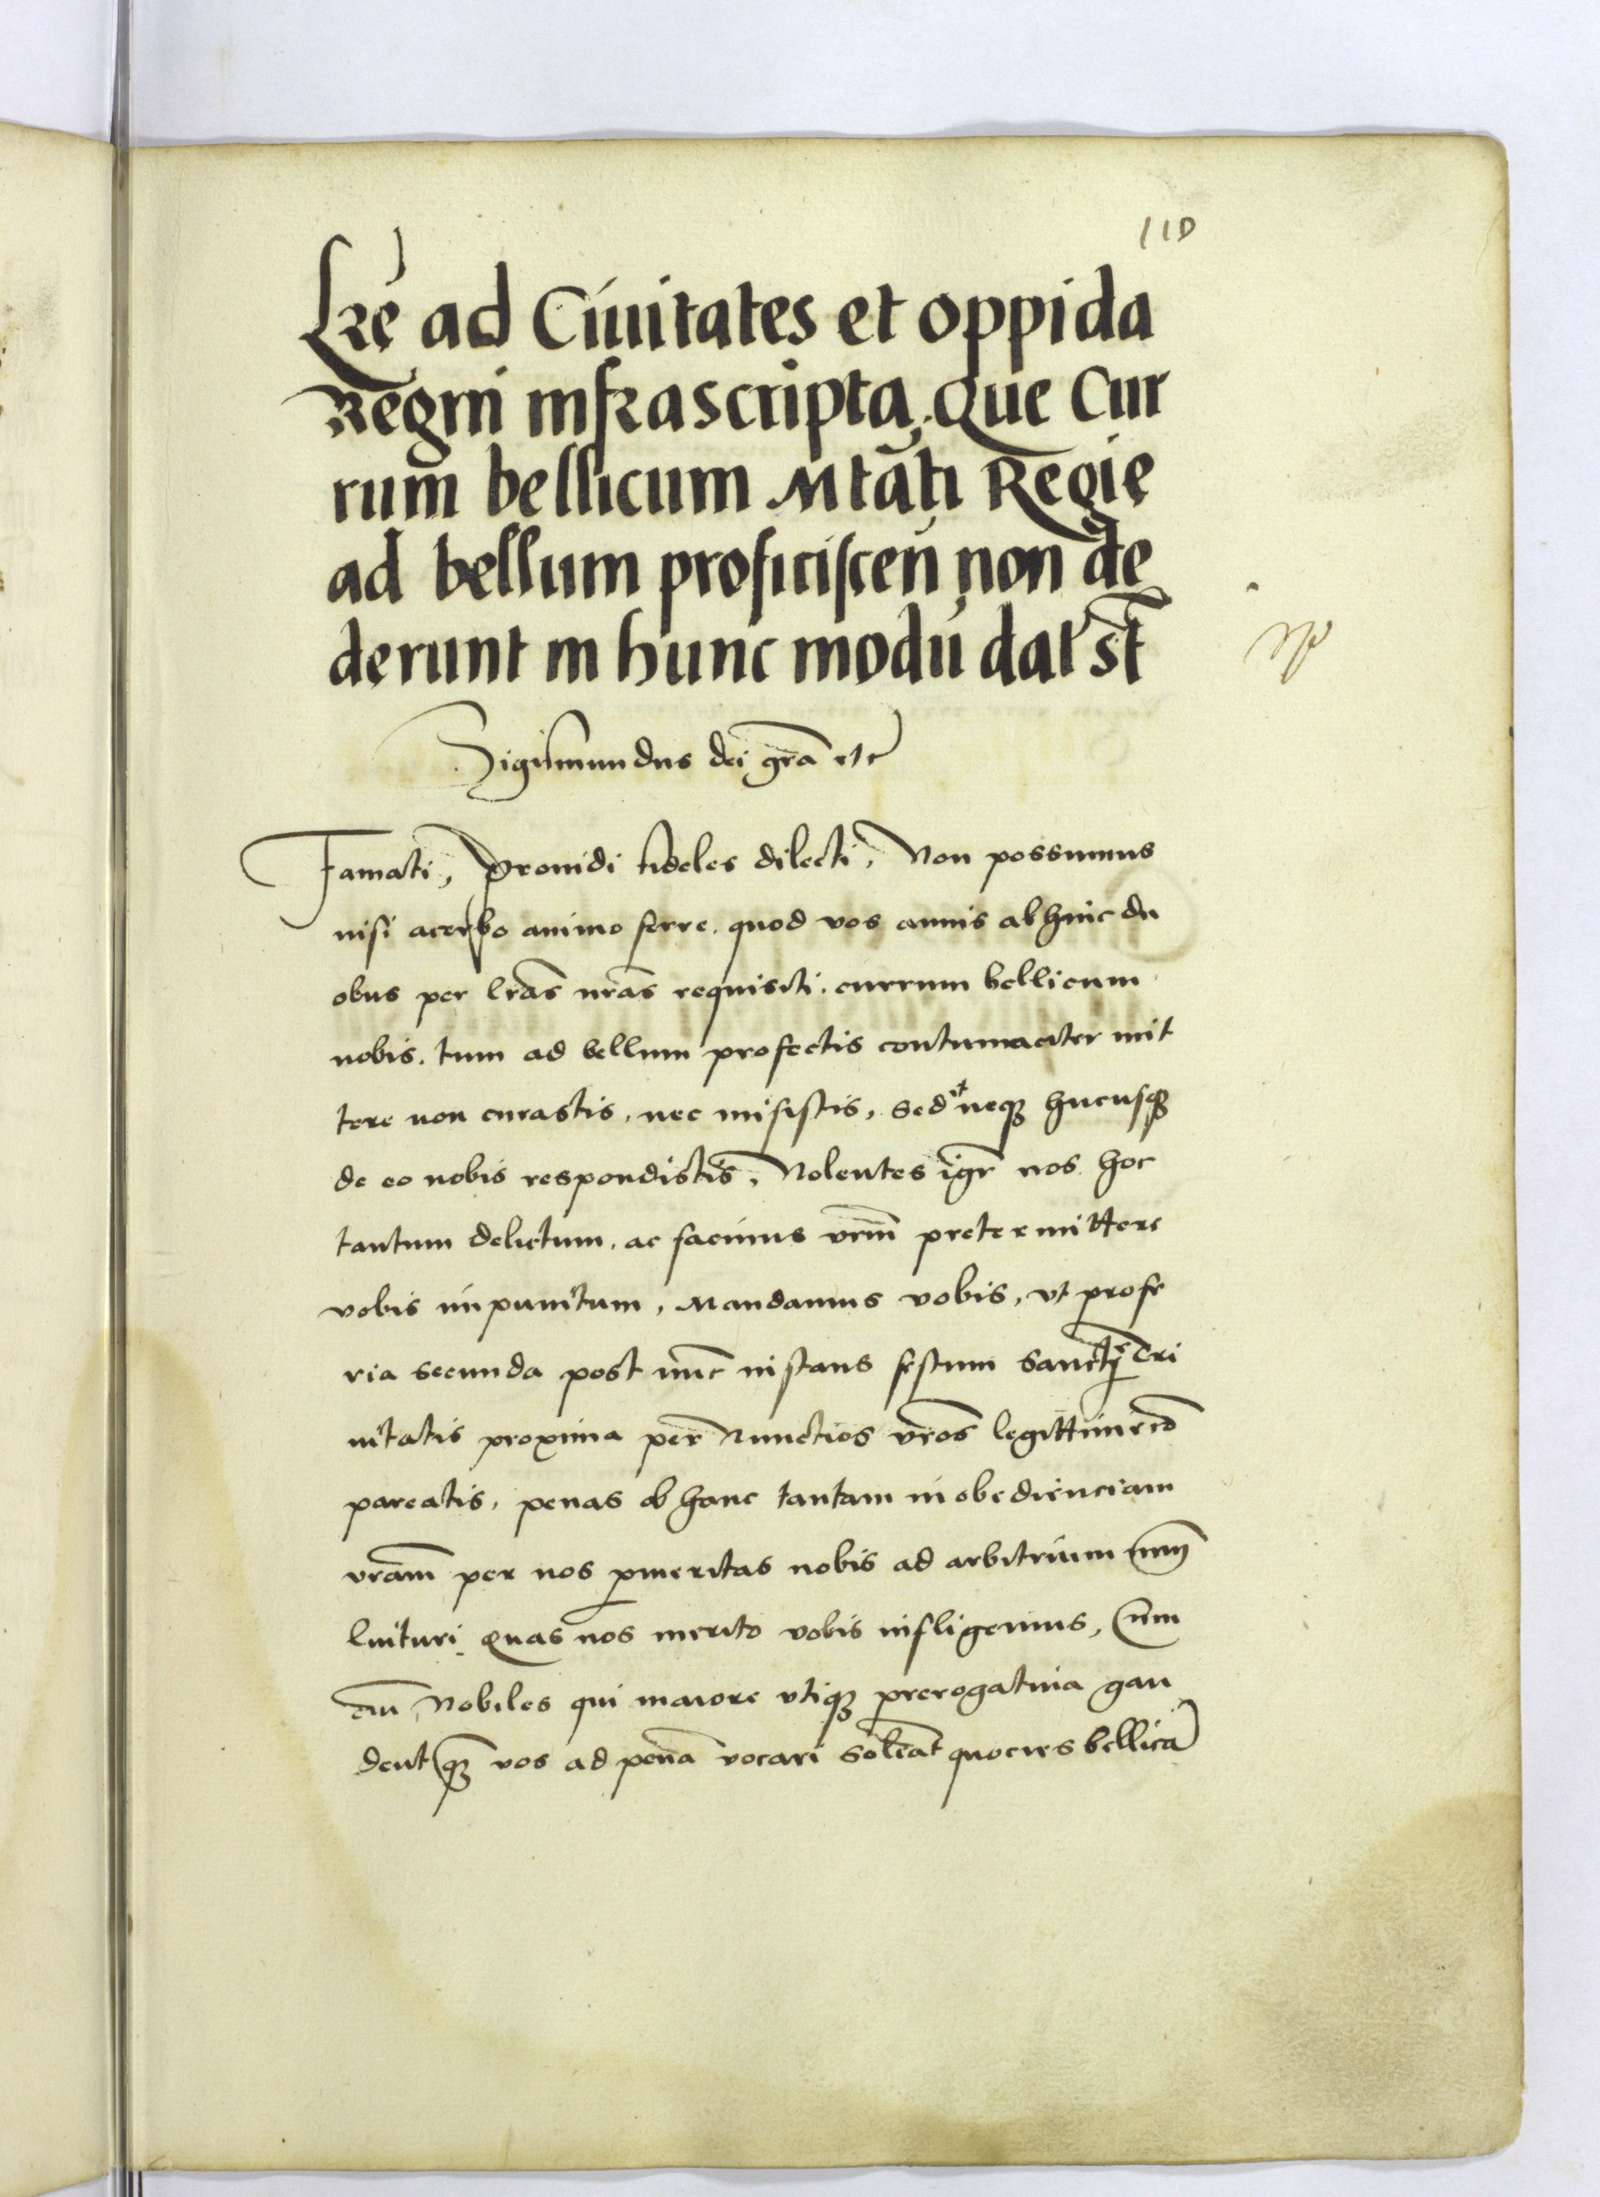 110
Lrę ad Ciuitates et oppida
Regni infrascripta, Que Cur
rum bellicum Mtati Regię
ad bellum proficiscen non de
derunt in hunc modu dat st
Sigismundus dei gra etc
Famati, Prouidi fideles dilecti, Non possumus
nisi acerbo animo ferre. quod vos annis abhinc du
obus per lras nras requisiti. currum bellicum
nobis. tum ad bellum profectis contumaciter mit
tere non curastis, nec misistis, sed et neq hucusq
de eo nobis respondistis, Nolentes igr nos hoc
tantum delictum, ac facinus vrm pretermittere
vobis impunitum, Mandamus vobis, vt pro fe
ria secunda post nunc instans festum Sancte Tri
nitatis proxima per Nunctios vros legittime co
pareatis, penas ob hanc tantam inobedienciam
vram per nos pmeritas nobis ad arbitrium nrm
luituri. Quas nos merito vobis infligemus, Cum
etiam, Nobiles qui maiore vtiq prerogatiua gau
dent q vos ad pena vocari soleat quocies bellica